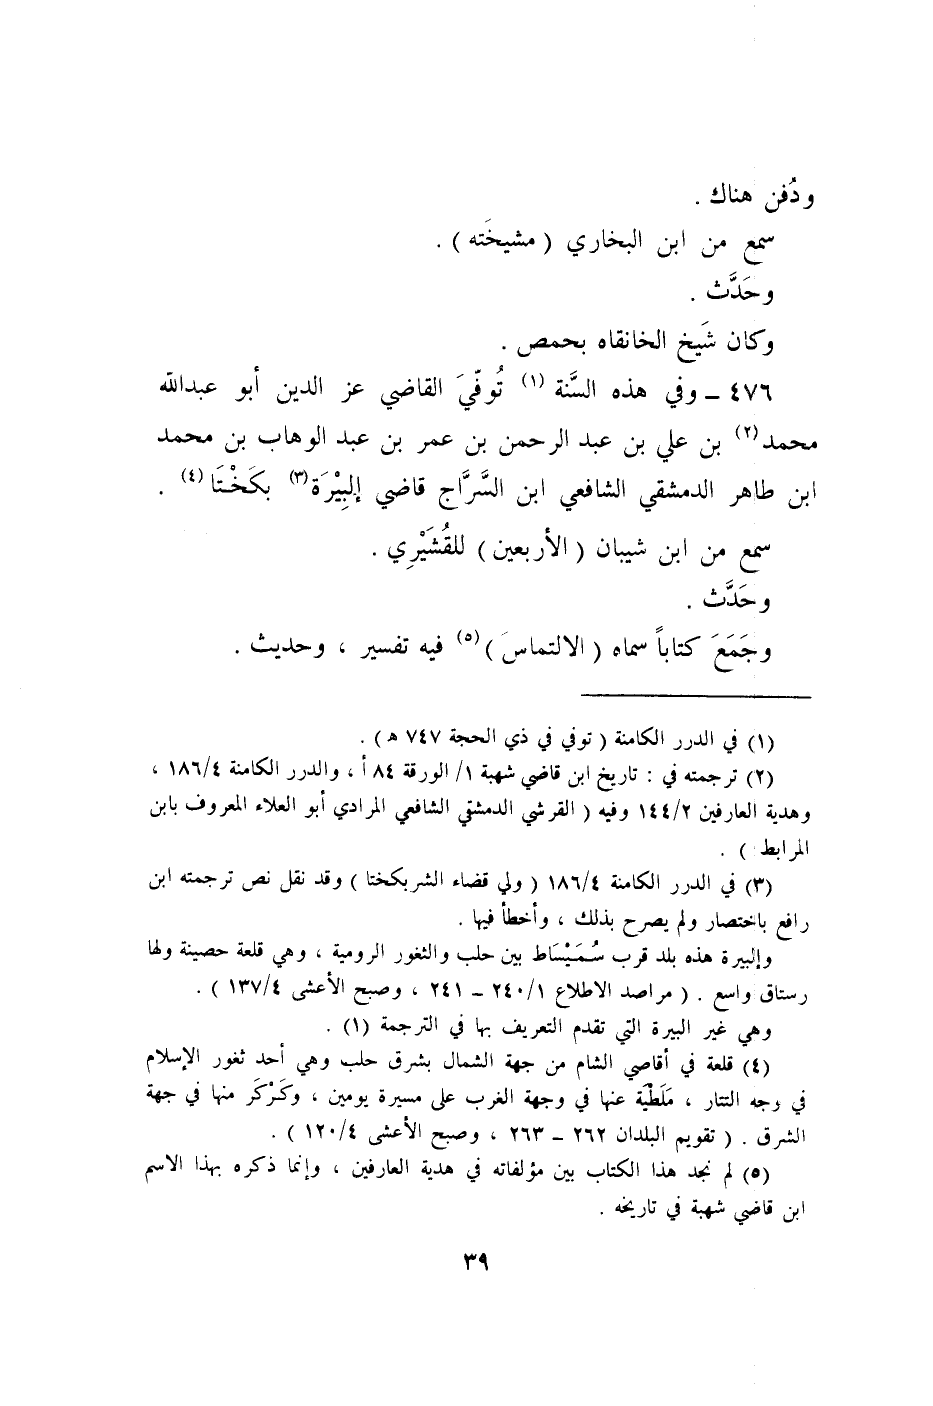 ودُفن هناك .
سمع من ابن البخاري ( مشيخَته ) .
وحَدَّث .
وكان شَيخ الخانقاه بحمص .
٤٧٦ ـ وفي هذه السَّنة (١) تُوفّيَ القاضي عز الدين أبو عبدالله
محمد(٢) بن علي بن عبد الرحمن بن عمر بن عبد الوهاب بن محمد
ابن طاهر الدمشقي الشافعي ابن السَّرَّاج قاضي إلبِيْرَة(٣) بكَخْتَا(٤) .
سمع من ابن شيبان ( الأربعين ) للقُشَيْرِي .
وحَدَّث .
وجَمَعَ كتاباً سماه ( الالتماسَ )(٥) فيه تفسير ، وحديث .
(١) في الدرر الكامنة ( توفي في ذي الحجة ٧٤٧ هـ ) .
(٢) ترجمته في : تاريخ ابن قاضي شهبة ١/ الورقة ٨٤ أ ، والدرر الكامنة ١٨٦/٤ ،
وهدية العارفين ١٤٤/٢ وفيه ( القرشي الدمشقي الشافعي المرادي أبو العلاء المعروف بابن
المرابط ) .
(٣) في الدرر الكامنة ١٨٦/٤ ( ولي قضاء الشربكختا ) وقد نقل نص ترجمته ابن
رافع باختصار ولم يصرح بذلك ، وأخطأ فيها .
وإلبيرة هذه بلد قرب سُمَيْسَاط بين حلب والثغور الرومية ، وهي قلعة حصينة ولها
رستاق واسع . ( مراصد الاطلاع ٢٤٠/١ ـ ٢٤١ ، وصبح الأعشى ١٣٧/٤ ) .
وهي غير البيرة التي تقدم التعريف بها في الترجمة (١) .
(٤) قلعة في أقاصي الشام من جهة الشمال بشرق حلب وهي أحد ثغور الإسلام
في وجه التتار ، مَلَطْيَة عنها في وجهة الغرب على مسيرة يومين ، وكَرْكَر منها في جهة
الشرق . ( تقويم البلدان ٢٦٢ ـ ٢٦٣ ، وصبح الأعشى ١٢٠/٤ ) .
(٥) لم نجد هذا الكتاب بين مؤلفاته في هدية العارفين ، وإنما ذكره بهذا الاسم
ابن قاضي شهبة في تاريخه .
٣٩